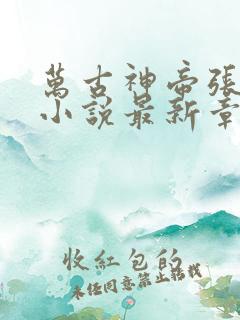 萬古神帝張
小說最新章
收紅包的
未经同意禁止转载